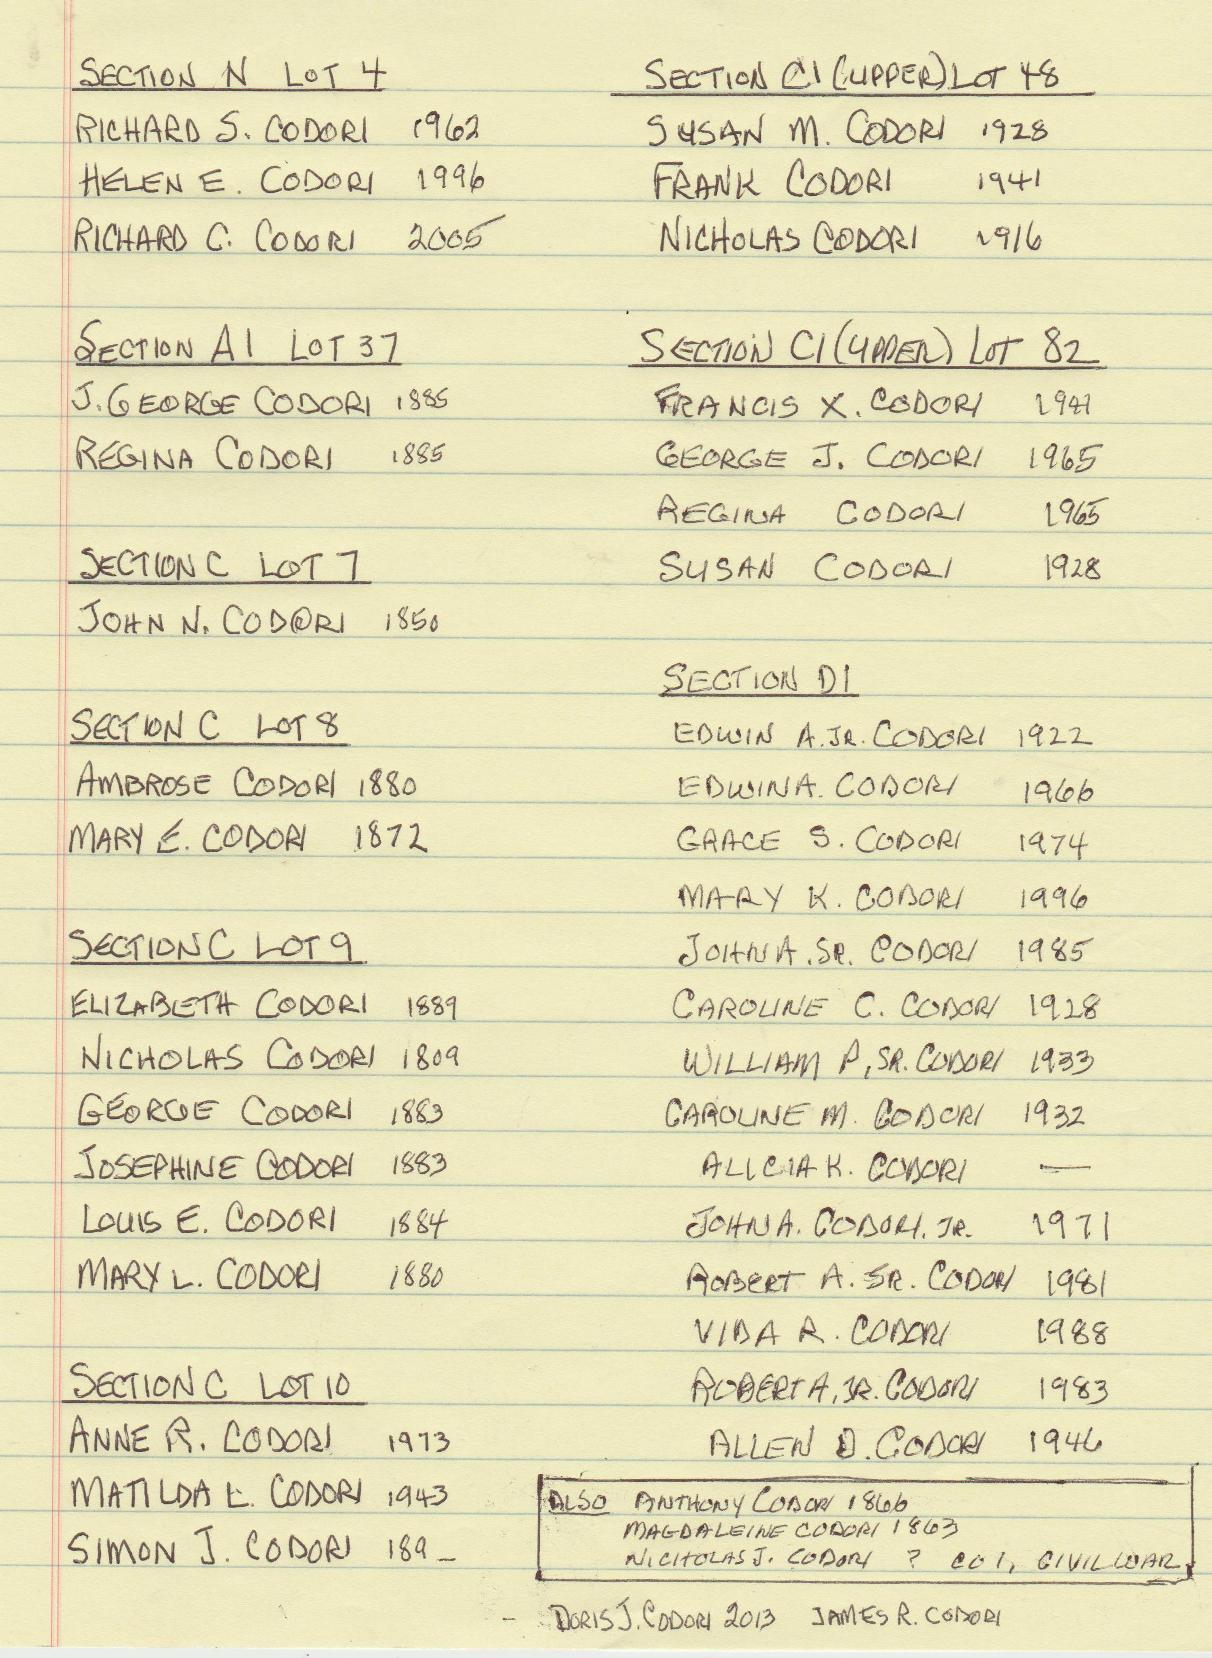 SECTION N LOT 4
RICHARD S. CODORI 1962
HELEN E. CODORI 1996
RICHARD C. CODORI 2005
SECTION A1 LOT 37
J. GEORGE CODORI 1885
REGINA CODORI 1885
SECTION C LOT 7
JOHN N. CODORI 1850
SECTION C LOT 8
AMBROSE CODORI 1880
MARY E. CODORI 1872
SECTION C LOT 9
ELIZABETH CODORI 1889
NICHOLAS CODORI 1809
GEORGE CODORI 1883
JOSEPHINE CODORI 1883
LOUIS E. CODORI 1884
MARY L. CODORI 1880
SECTION C LOT 10
ANNE R. CODORI 1973
MATILDA L. CODORI 1943
SIMON J. CODORI 189_
SECTION C1 (UPPER) LOT 48
SUSAN M. CODORI 1928
FRANK CODORI 1941
NICHOLAS CODORI 1916
SECTION C1 (UPPER) LOT 82
FRANCIS X. CODORI 1941
GEORGE J. CODORI 1965
REGINA CODORI 1965
SUSAN CODORI 1928
SECTION D1
EDWIN A. JR. CODORI 1922
EDWIN A. CODORI 1966
GRACE S. CODORI 1974
MARY K. CODORI 1996
JOHN A. SR. CODORI 1985
CAROLINE C. CODORI 1928
WILLIAM P, SR. CODORI 1933
CAROLINE M. CODORI 1932
ALICIA K. CODORI —
JOHN A. CODORI, JR. 1971
ROBERT A. SR. CODORI 1981
VIDA R. CODORI 1988
ROBERT A, JR. CODORI 1983
ALLEN D. CODORI 1946
ALSO ANTHONY CODORI 1866
MAGDALEINE CODORI 1863
NICHOLAS J. CODORI ? CO I, CIVIL WAR
- DORIS J. CODORI 2013 JAMES R. CODORI